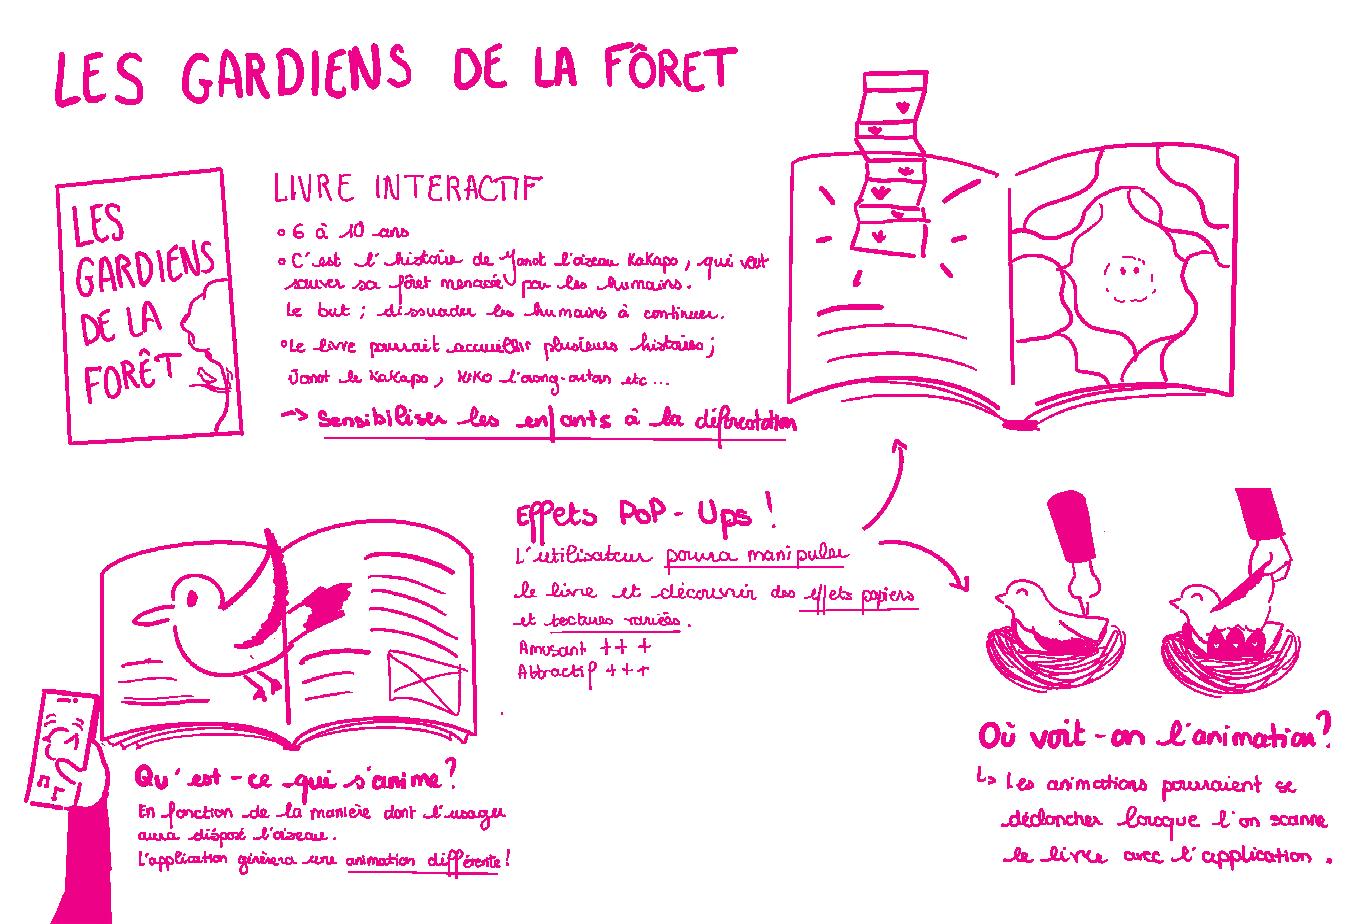 LES GARDIENS DE LA FÔRET
LES
GARDIENS
DE LA
FORÊT
LIVRE INTERACTIF
6 à 10 ans
C'est l'histoire de Janot l'oiseau KaKapo, qui veut
sauver sa fôret menacée par les humains.
Le but ; dissuader les humains à continuer.
Le livre pourrait accueillir plusieurs histoires ;
Janot le KaKapo, KiKO l'orang-outan etc...
-> Sensibiliser les enfants à la déforestation
Effets PoP-Ups !
L'utilisateur pourra manipuler
le livre et découvrir des effets papiers
et textures variées.
Amusant +++
Attractif +++
Qu'est-ce qui s'anime ?
En fonction de la manière dont l'usager
aura disposé l'oiseau.
L'application générera une animation différente !
Où voit-on l'animation ?
↳ Les animations pourraient se
déclancher lorsque l'on scanne
le livre avec l'application.